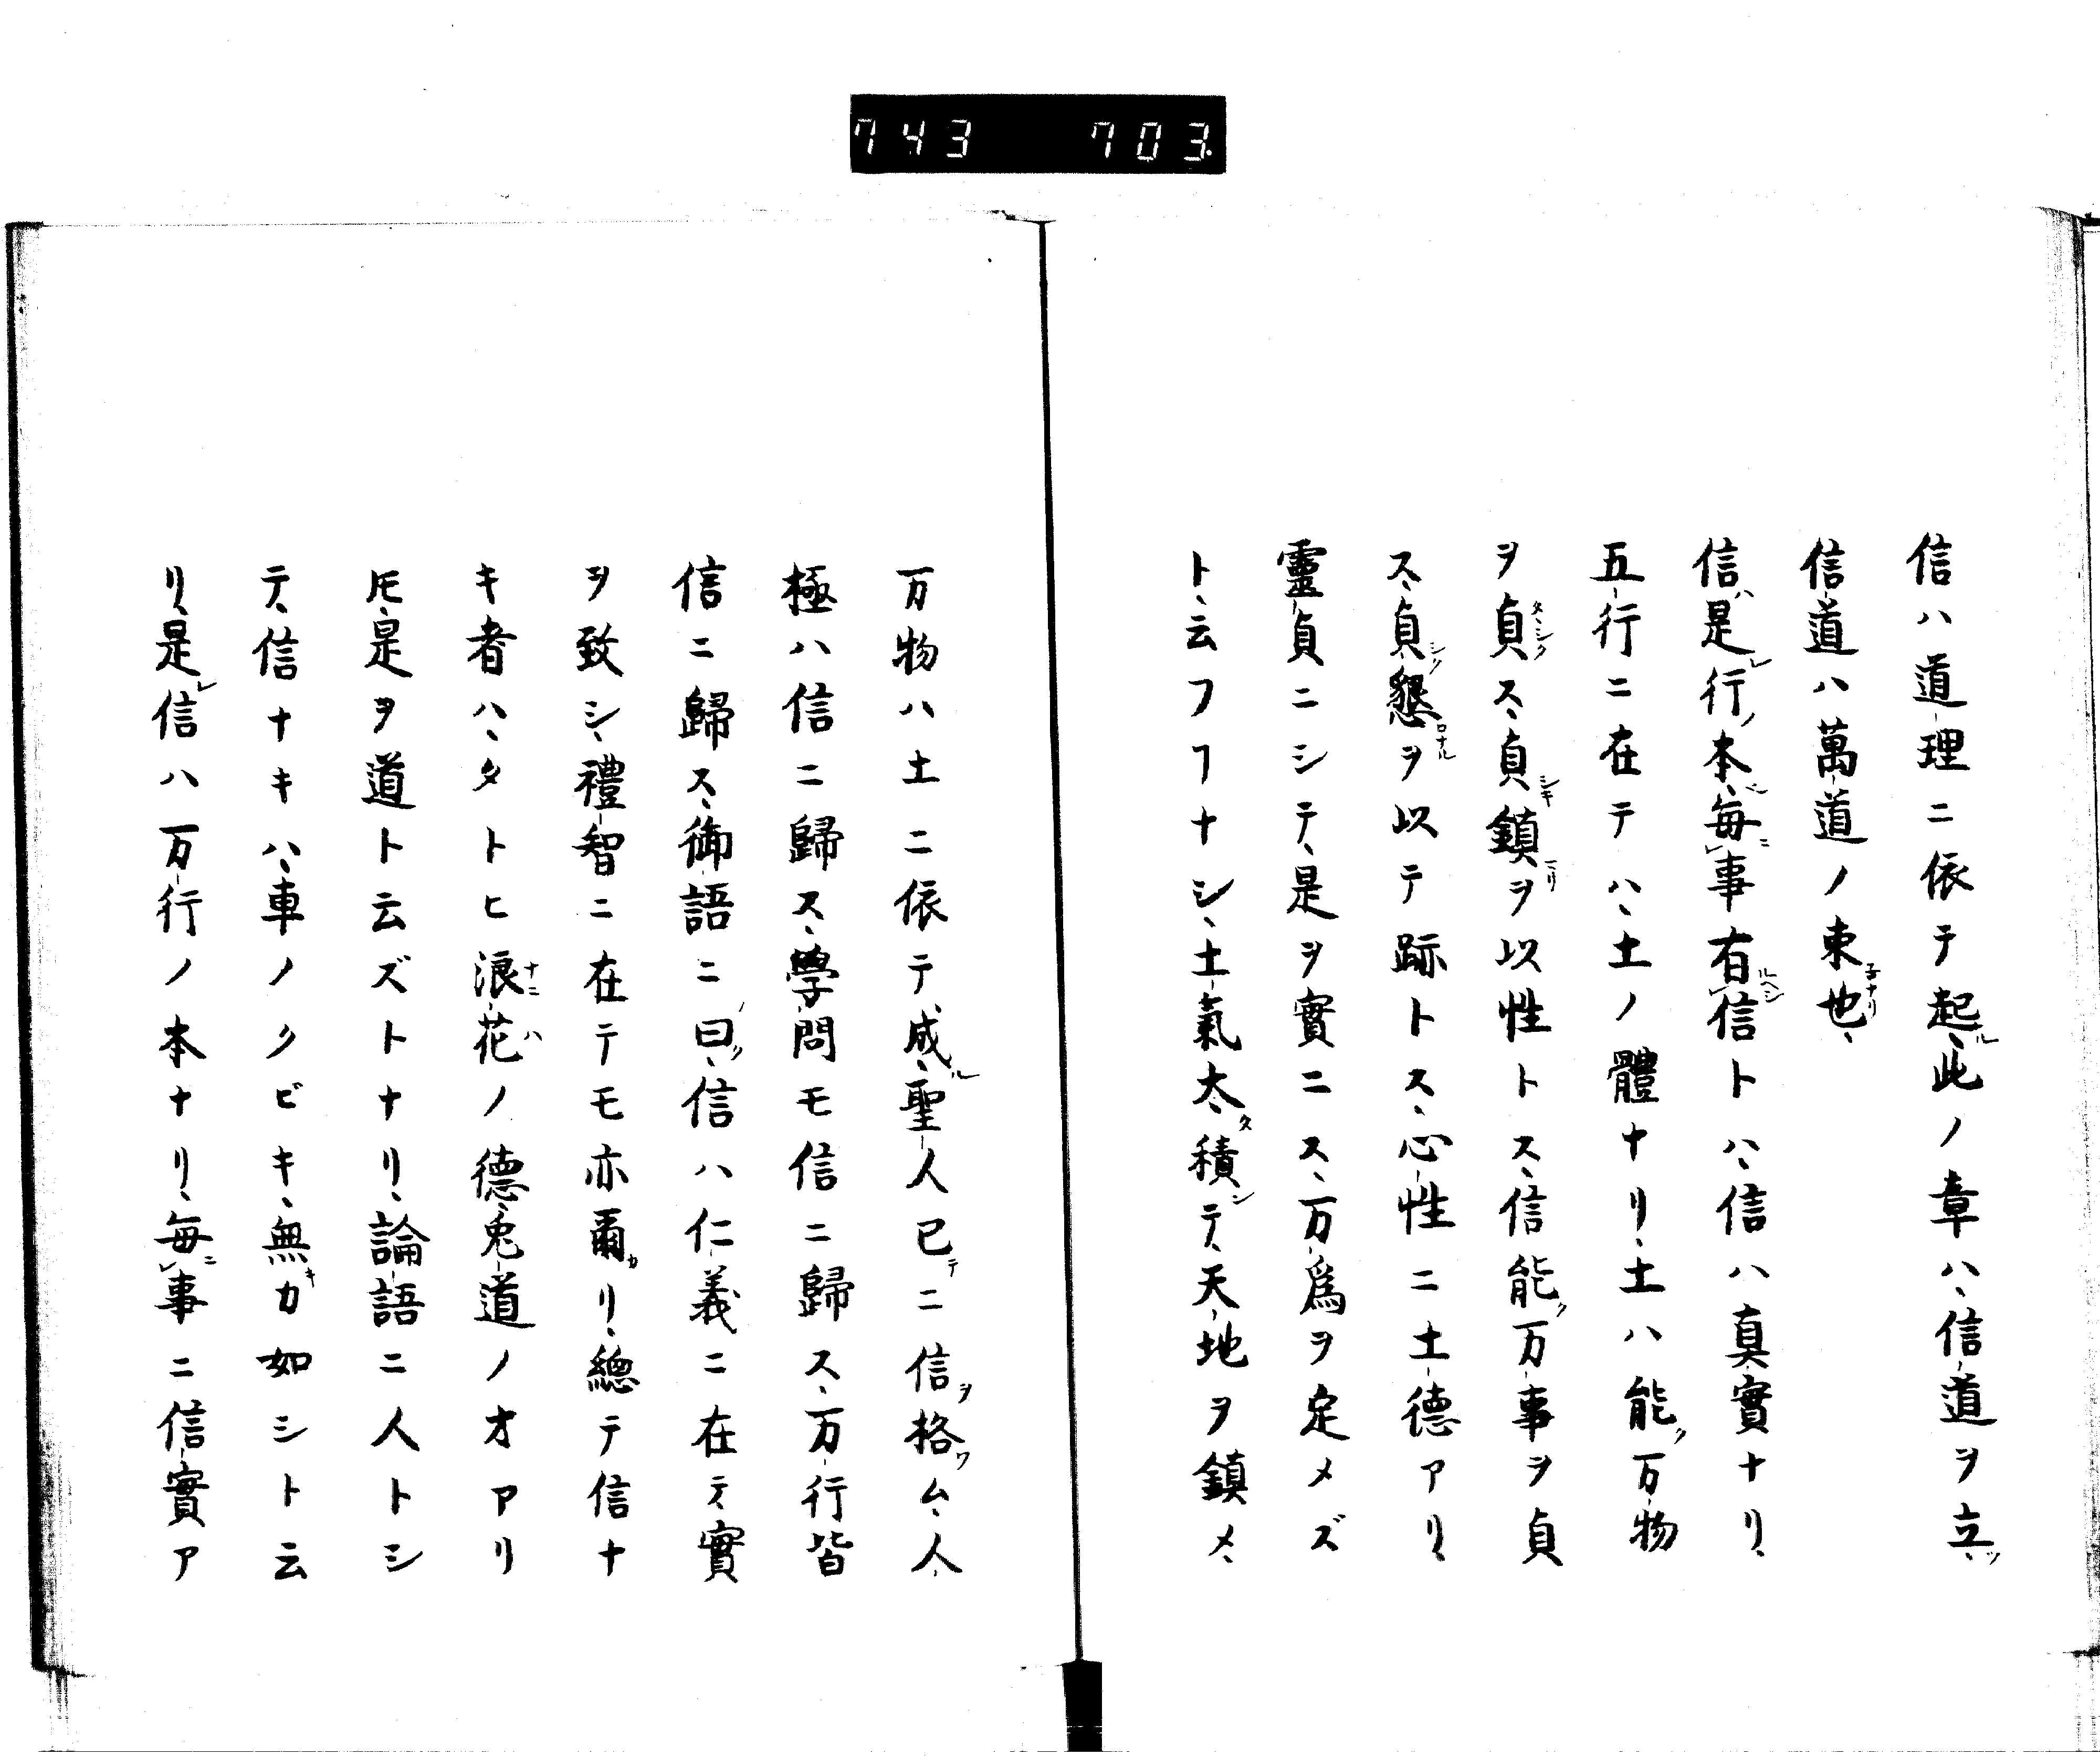 743 703.
信ハ道理ニ依テ起ル、此ノ章ハ、信道ヲ立ツ、
信道ハ萬道ノ束子ナリ也、
信ハ是レ行ノ本、毎ニ事有ルヘシ信トハ、信ハ真實ナリ、
五行ニ在テハ、土ノ體ナリ、土ハ能ク万物
ヲ貞タヽシクス、貞シキ鎮リヲ以性トス、信能ク万事ヲ貞
ス、貞シク懇ロナルヲ以テ跡トス、心性ニ土德アリ、
靈貞ニシテ、是ヲ實ニス、万爲ヲ定メズ
ト云フヿナシ、土氣太タ積シテ、天地ヲ鎮メ、
万物ハ土ニ依テ成ル、聖人已テニ信ヲ格ワム、人
極ハ信ニ歸ス、學問モ信ニ歸ス、万行皆
信ニ歸ス、御語ニノ曰ク、信ハ仁義ニ在テ實
ヲ致シ、禮智ニ在テモ亦爾カリ、總テ信ナ
キ者ハ、タトヒ浪ナニ花ハノ德、兎道ノ才アリ
𪜈、是ヲ道ト云ズトナリ、論語ニ人トシ
テ、信ナキハ、車ノクビキ、無キカ如シト云
リ、是レ信ハ万行ノ本ナリ、毎ニ事ニ信實ア